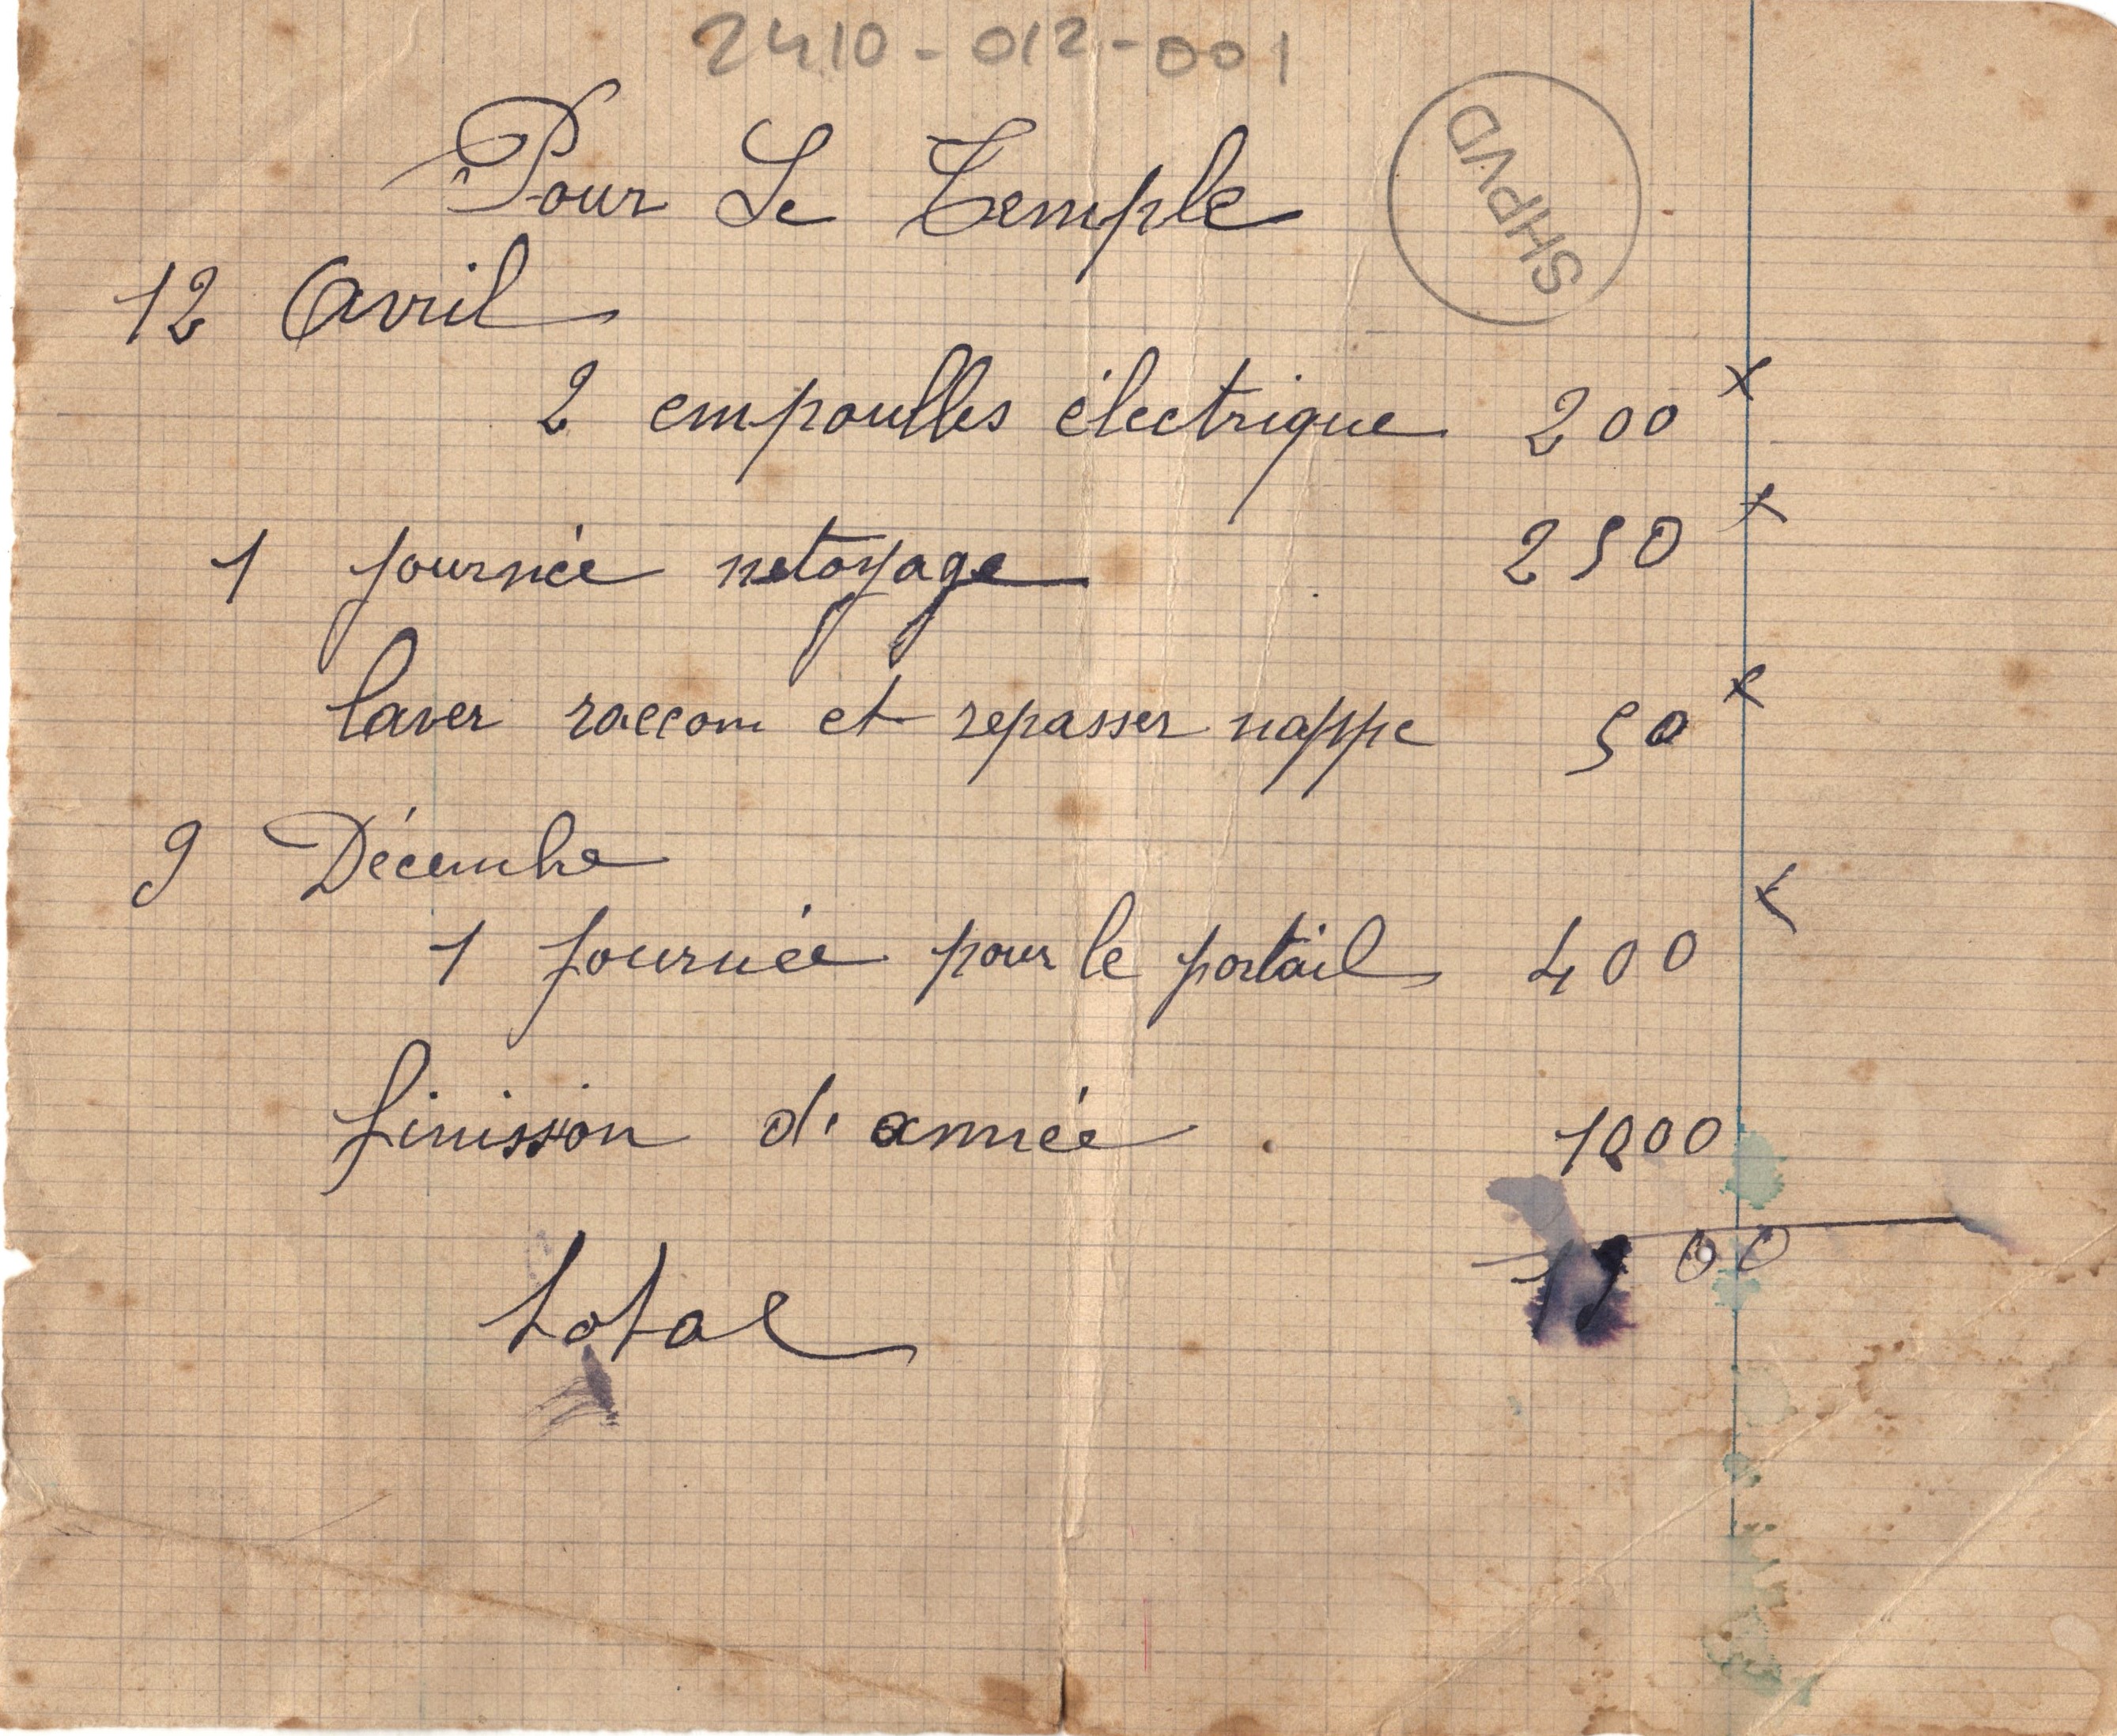 2410-012-001
SHPVD
Pour Le Temple
12 Avril
2 empoulles électrique 200 x
1 journée netoyage 250 x
laver raccom et repasser nappe 50 x
9 Décembre
1 journée pour le portail 400 x
finission d'année 1000
total 1900